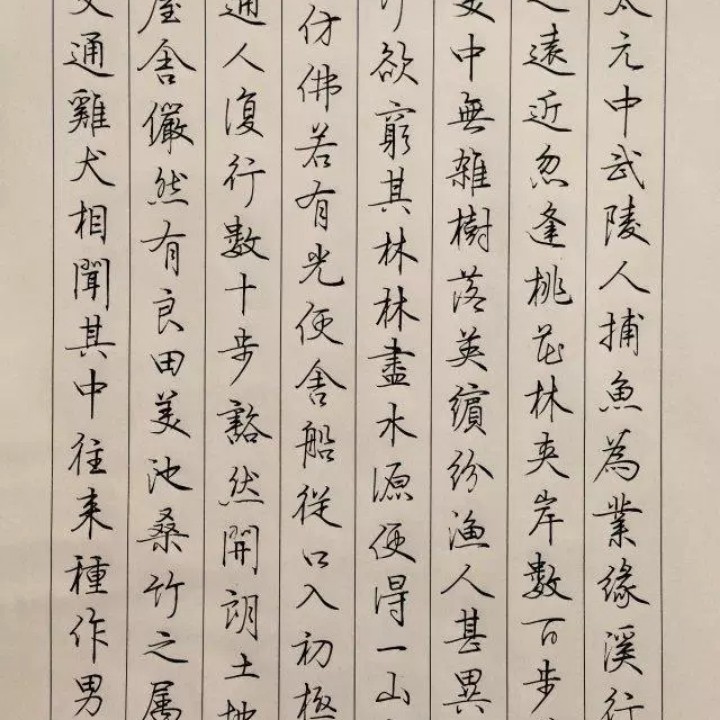 太元中武陵人捕魚為業緣溪行
之遠近忽逢桃花林夾岸數百步
中無雜樹落英繽紛漁人甚異
行欲窮其林林盡水源便得一山
仿佛若有光便舍船從口入初極
通人復行數十步豁然開朗土地
屋舍儼然有良田美池桑竹之屬
交通雞犬相聞其中往來種作男